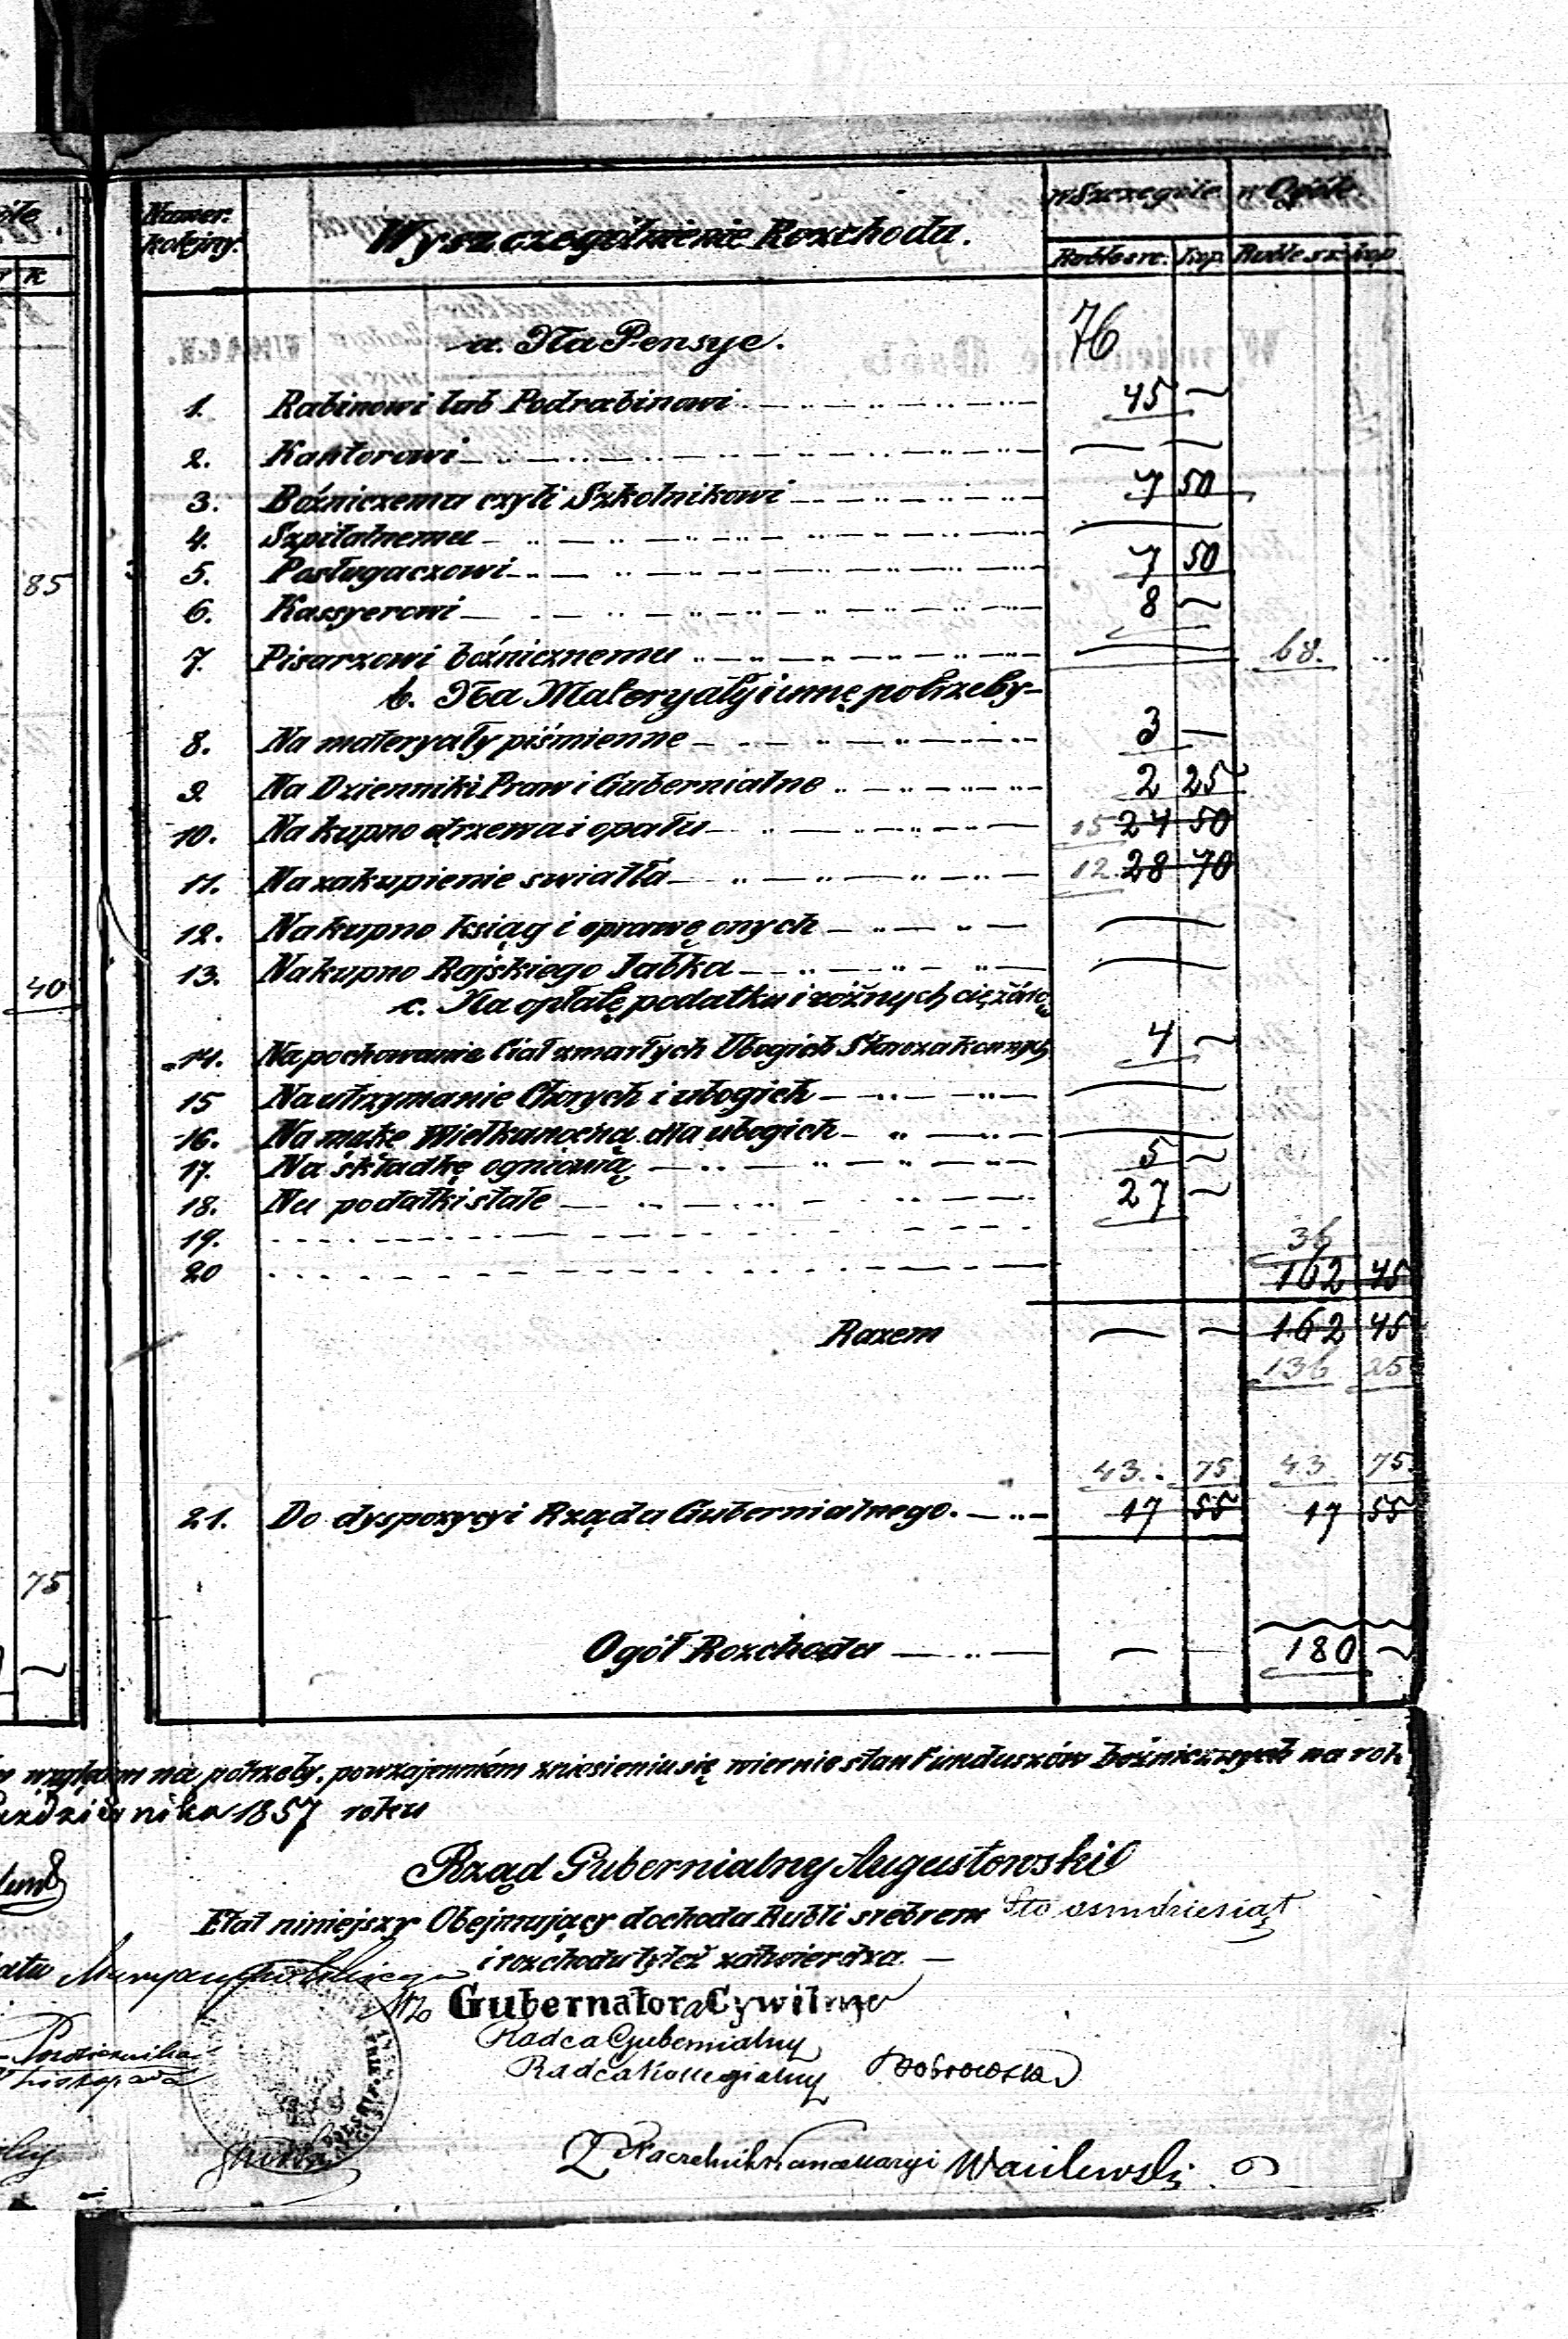 Numer kolejny. Wyszczególnienie Rozchodu. w Szczególe w Ogóle.
Ruble sre. kop. Ruble sr. kop
a. Na Pensye. 76
1. Rabinowi lub Podrabinowi 45 —
2. Kantorowi — —
3. Bóżniczemu czyli Szkolnikowi 7 50
4. Szpitalnemu —
85 5. Posługaczowi 7 50
6. Kassyerowi 8 —
7. Pisarzowi bóżnicznemu — 68.
b. Na Materyały i inne potrzeby
8. Na materyały piśmienne 3 —
9 Na Dzienniki Praw i Gubernialne 2 25
10. Na kupno drzewa i opału 15 24 50
11. Na zakupienie swiatła 12. 28 70
12. Na kupno ksiąg i oprawę onych —
13. Na kupno Rajskiego Jabłka —
40 c. Na opłatę podatku i różnych ciężarów
14. Na pochowanie Ciał zmarłych Ubogich Starozakonnych 4 —
15 Na utrzymanie Chorych i ubogich —
16. Na mąkę Wielkanocną dla ubogich —
17. Na składkę ogniową 5 —
18. Na podatki stałe 27 —
19. 36
20 162 45
Razem — — 162 45
136 25
43. 75. 43 75.
21. Do dyspozycyi Rządu Gubernialnego. 17 55 17 55
75
Ogół Rozchodu — — 180 —
względem na potrzeby, powzajemném zniesieniu się wiernie stan Funduszów bóżnicznych na rok
Października 1857 roku
Rząd Gubernialny Augustowski
Etat niniejszy Obejmujący dochodu Rubli srebrem Sto osmdziesiąt
i rozchodu tyleż zatwierdza.
Gubernator Cywilny
Radca Gubernialny
Radca Kollegialny
Października
Listopada
Naczelnik Kancellaryi